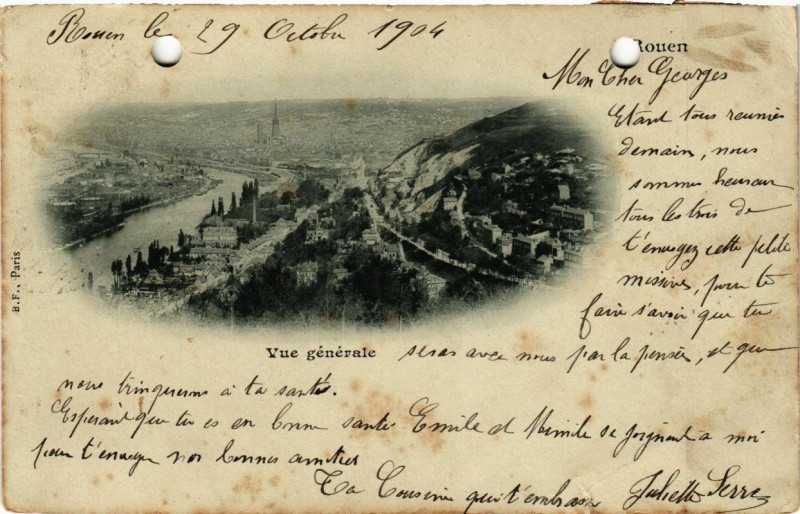 Rouen le 29 Octobre 1904
Rouen
Mon Cher Georges
Etant tous reunies
demain, nous
sommes heureux
tous les trois de
t'envoyez cette petite
missives, pour te
faire s'avoir que tu
Vue générale
seras avec nous par la pensée, et que
nous trinquerons à ta santés.
Esperant que tu es en bonne santé Emile et Mimile se joignent a moi
pour t'envoyer nos bonnes amities
Ta Cousine qui t'embrasse Juliette Serre
B.F., Paris